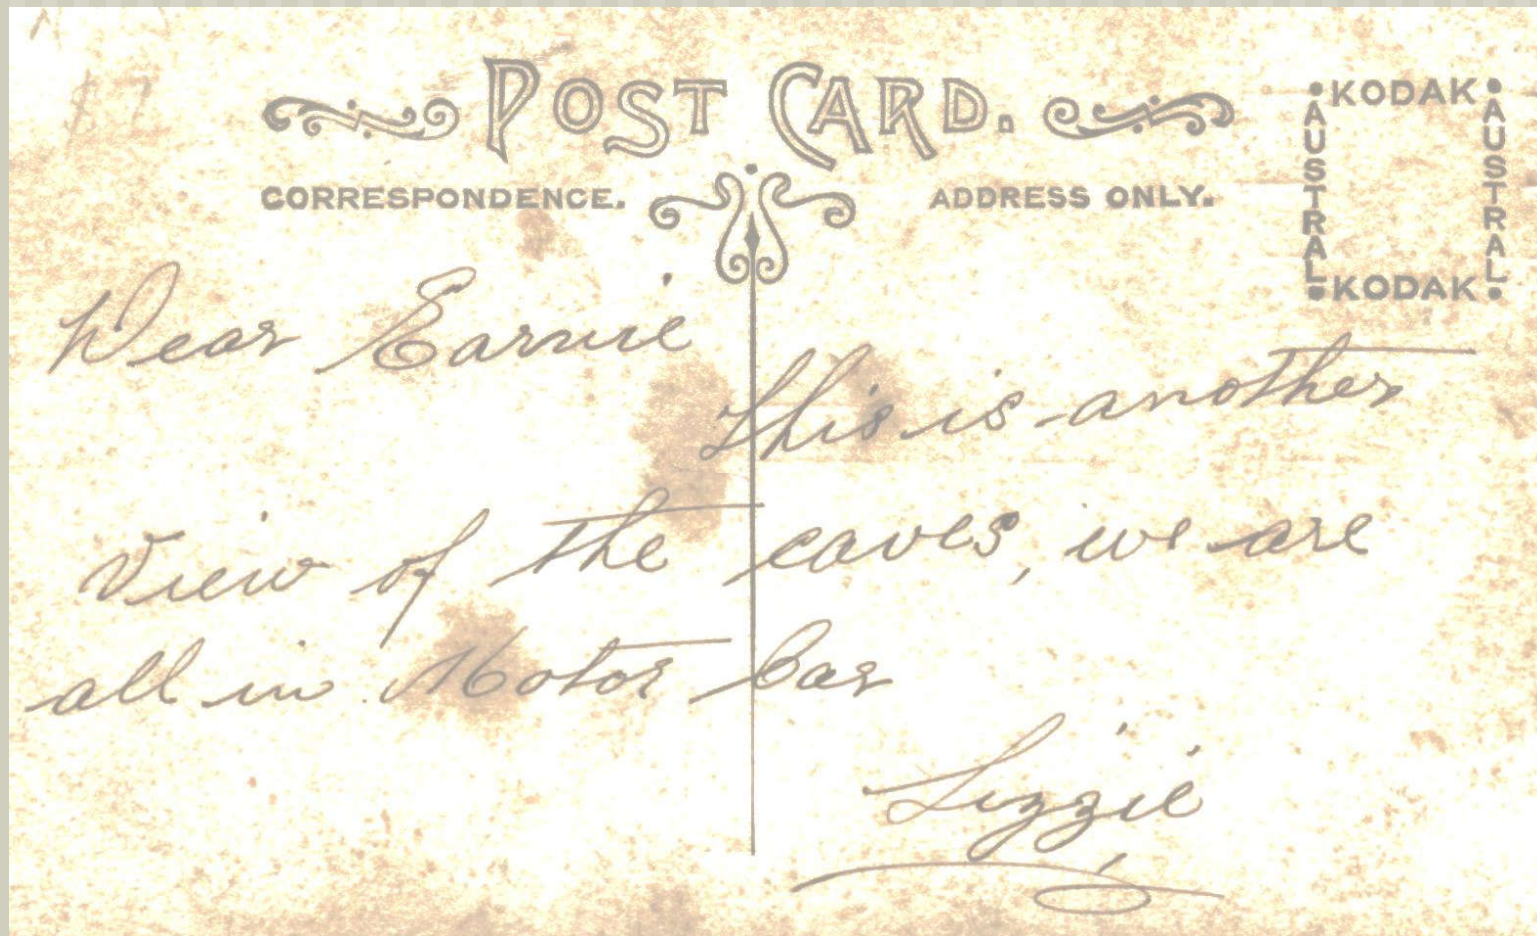 $7
POST CARD.
CORRESPONDENCE.
ADDRESS ONLY.
KODAK
AUSTRAL
AUSTRAL
KODAK
Dear Earnie
This is another
view of the caves, we are
all in Motor Car
Lizzie